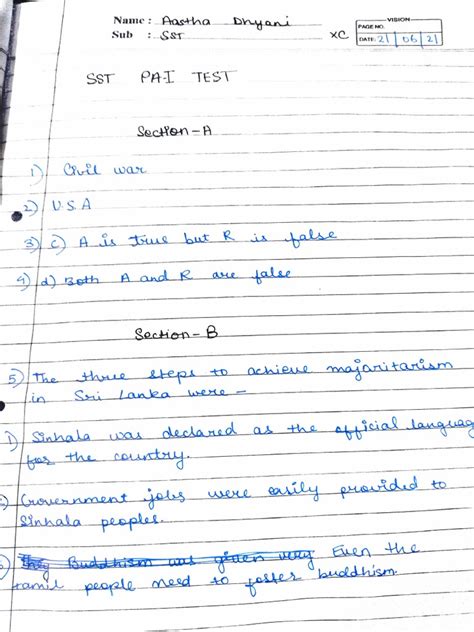 Name : Aastha Dhyani
Sub : SST
XC
VISION
PAGE NO.
DATE: 21 06 21
SST PAI TEST
Section-A
1) Civil war
2) U.S.A
3) c) A is true but R is false
4) d) Both A and R are false
Section-B
5) The three steps to achieve majaritarism
in Sri Lanka were -
1) Sinhala was declared as the official language
for the country.
Government jobs were easily provided to
Sinhala peoples.
They Buddhism was given very Even the
tamil people need to foster buddhism.